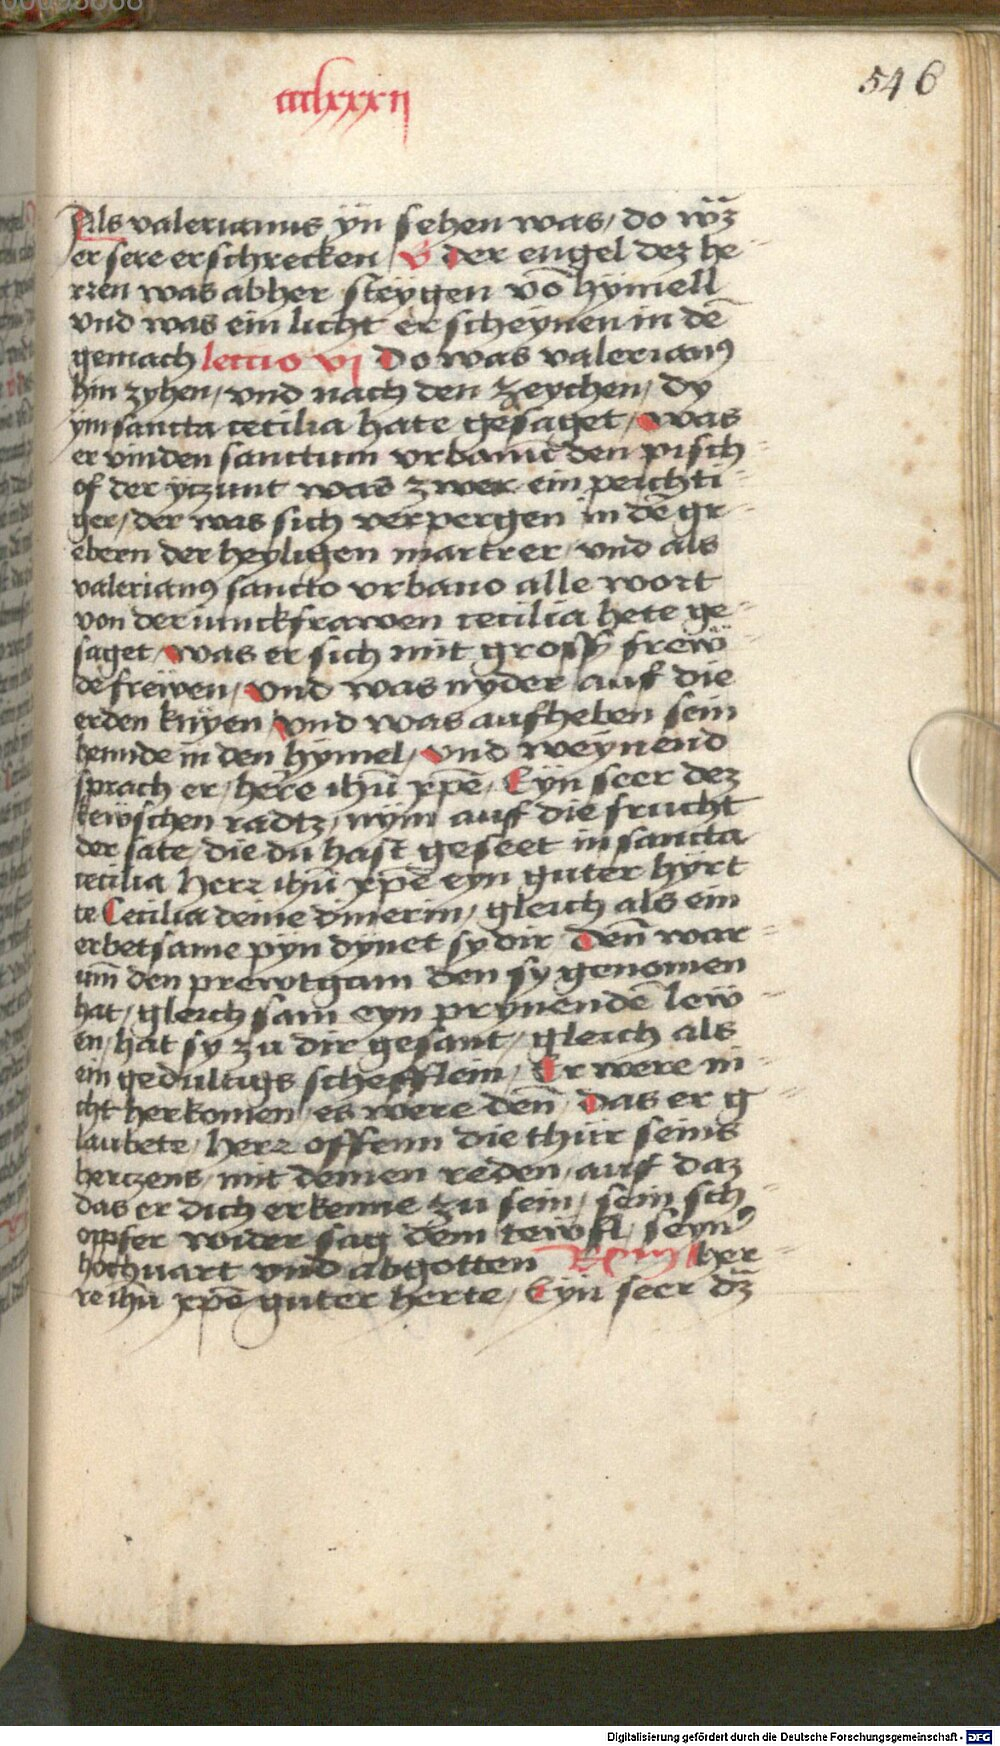 546
cccclxxxij
Als valerianus ÿn sehen was / do wz̄
er sere erschrecken / v Der engel dez he=
rzen was abher steÿgen vō hÿmell
vnd was ein licht erscheÿnen in dē
gemach lectio vj Do was valerianꝰ
hin zyhen / vnd nach den zeychen / dy
ÿm sancta cecilia hate gesaget / was
er vinden sanctum vrbanū den pisch=
of der ÿtzunt was zwer ein peichti=
ger / der was sich verpergen in dē gr=
ebern der heyligen martrer / vnd als
valerianꝰ sancto vrbano alle wort
von der iunckfrawen cecilia hete ge=
saget / was er sich mit grosser frew=
de frewen / vnd was nyder auf die
erden knÿen / vnd was aufheben sein
hennde in den hÿmel / vnd weÿnend
sprach er / here ihū xpē / Eÿn seer dez
kewschen radtz / nÿm auf die frucht
der sate / die du hast geseet in sancta
cecilia Herz ihū xpē eyn guter hÿrt
te Cecilia deine dinerin / gleich als ein
erbetsame pyn dynet sy dir Denn war=
um̄ den prewtgam den sy genomen
hat / gleich sam eyn prÿnendē lew=
en / hat sy zu dir gesant / gleich als
ein gedultigs schefflein / Er were ni=
cht herkomen / es were denn̄ Das er g=
laubete / Herz offenn die thür seins
herczens / mit deinen reden / auf daz
das er dich erkenne zu sein / sein sch=
opfer wider sag dem tewfl / seynꝰ
hochuart vnd abgotten her=
re ihū xpē guter herte / Eÿn seer dz̄
Digitalisierung gefördert durch die Deutsche Forschungsgemeinschaft - DFG